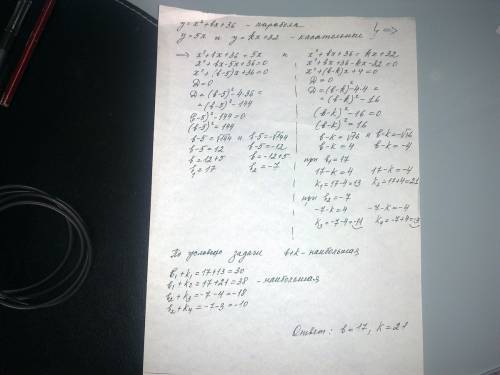 y=x²+bx+36 - парабола
y=5x и y=kx+32 - касательные } =>
=> x²+bx+36=5x и x²+bx+36=kx+32
x²+bx-5x+36=0 x²+bx+36-kx-32=0
x²+(b-5)x+36=0 x²+(b-k)x+4=0
D=0 D=0
D=(b-5)²-4·36= D=(b-k)²-4·4=
=(b-5)²-144 =(b-k)²-16
(b-5)²-144=0 (b-k)²-16=0
(b-5)²=144 (b-k)²=16
b-5=√144 и b-5=-√144 b-k=√16 и b-k=-√16
b-5=12 b-5=-12 b-k=4 b-k=-4
b=12+5 b=-12+5 при b₁=17
b₁=17 b₂=-7 17-k=4 17-k=-4
k₁=17-4=13 k₂=17+4=21
при b₂=-7
-7-k=4 -7-k=-4
k₃=-7-4=-11 k₄=-7+4=-3
По условию задачи b+k - наибольшая
b₁+k₁=17+13=30
b₁+k₂=17+21=38 - наибольшая
b₂+k₃=-7-4=-18
b₂+k₄=-7-3=-10
Ответ: b=17, k=21